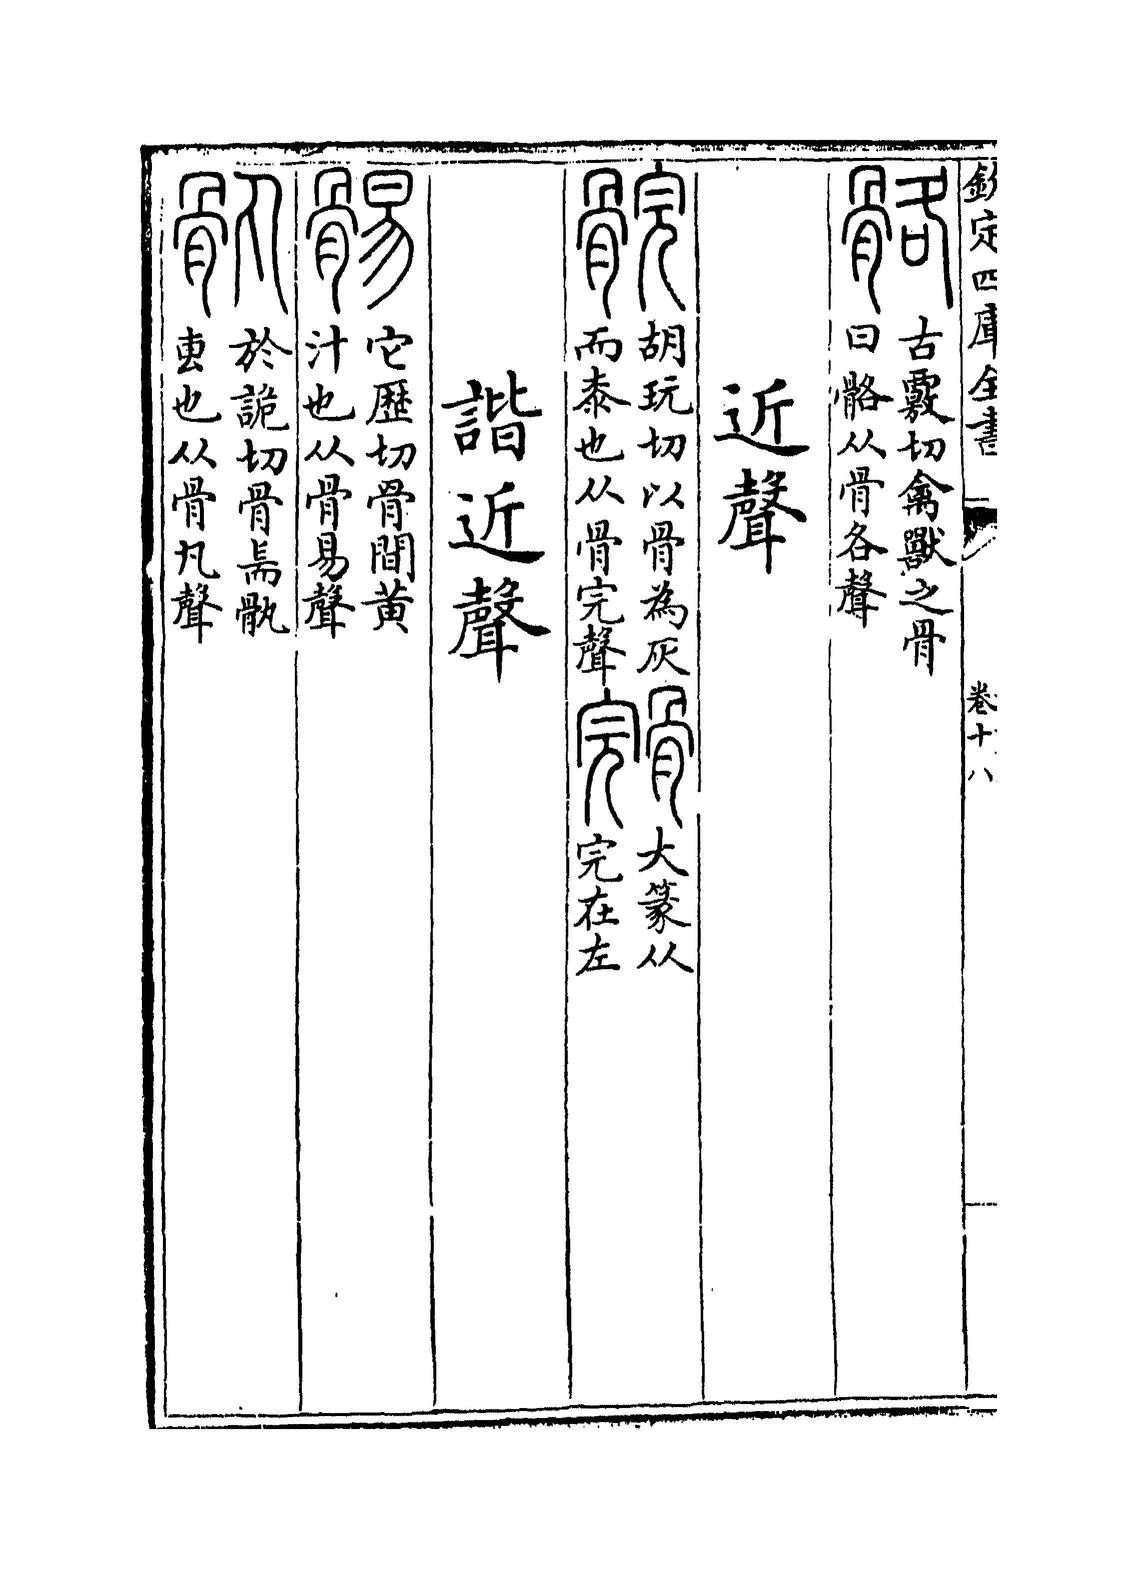 欽定四庫全書
卷十八
骼 古覈切禽獸之骨
曰骼从骨各聲
近聲
𩩈 胡玩切以骨為灰
而桼也从骨完聲
大篆从
完在左
諧近聲
骨易 它歷切骨間黃
汁也从骨易聲
骩 於詭切骨耑骩
㕯也从骨丸聲